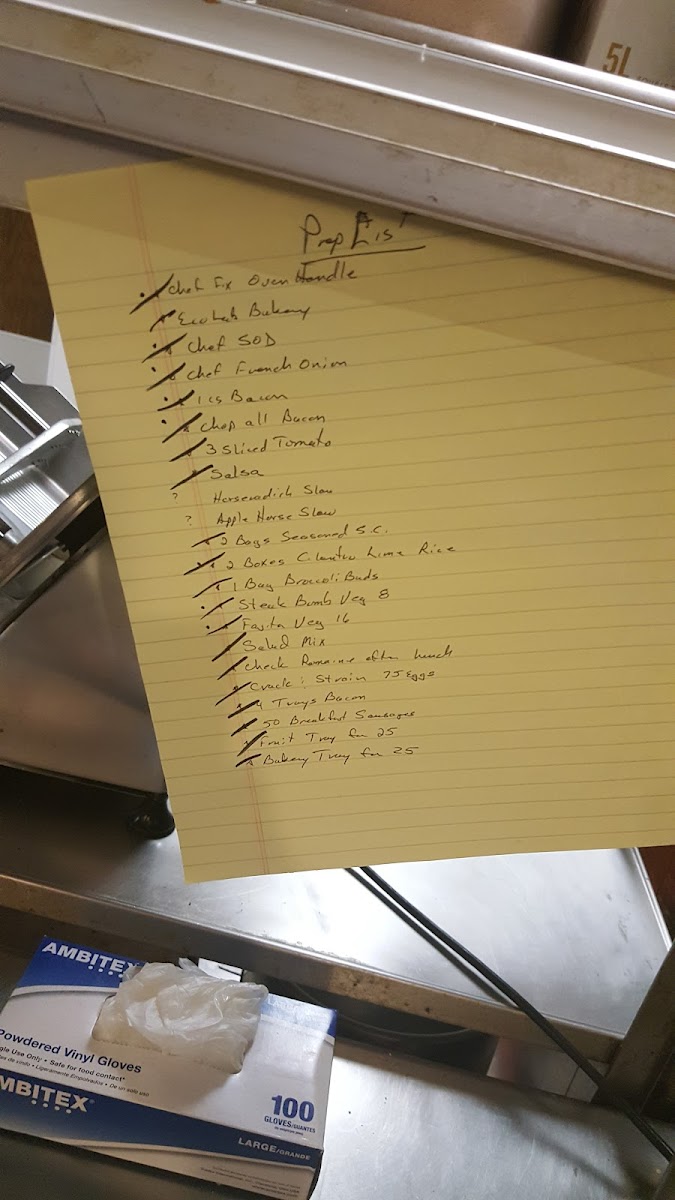 5L
Prep List
Chef Fix Oven Handle
Ecolab Bakery
Chef SOD
Chef French Onion
1 cs Bacon
Chop all Bacon
3 Sliced Tomato
Salsa
? Horseradish Slaw
? Apple Horse Slaw
2 Bags Seasoned S.C.
2 Boxes Cilantro Lime Rice
1 Bag Broccoli Buds
Steak Bomb Veg 8
Fajita Veg 16
Salad Mix
Check Romaine after lunch
Crack & Strain 75 Eggs
4 Trays Bacon
50 Breakfast Sausages
Fruit Tray for 25
Bakery Tray for 25
AMBITEX
Powdered Vinyl Gloves
gle Use Only • Safe for food contact*
• Ligeramente Empolvados • De un solo uso
MBITEX
100
GLOVES/GUANTES
LARGE/GRANDE